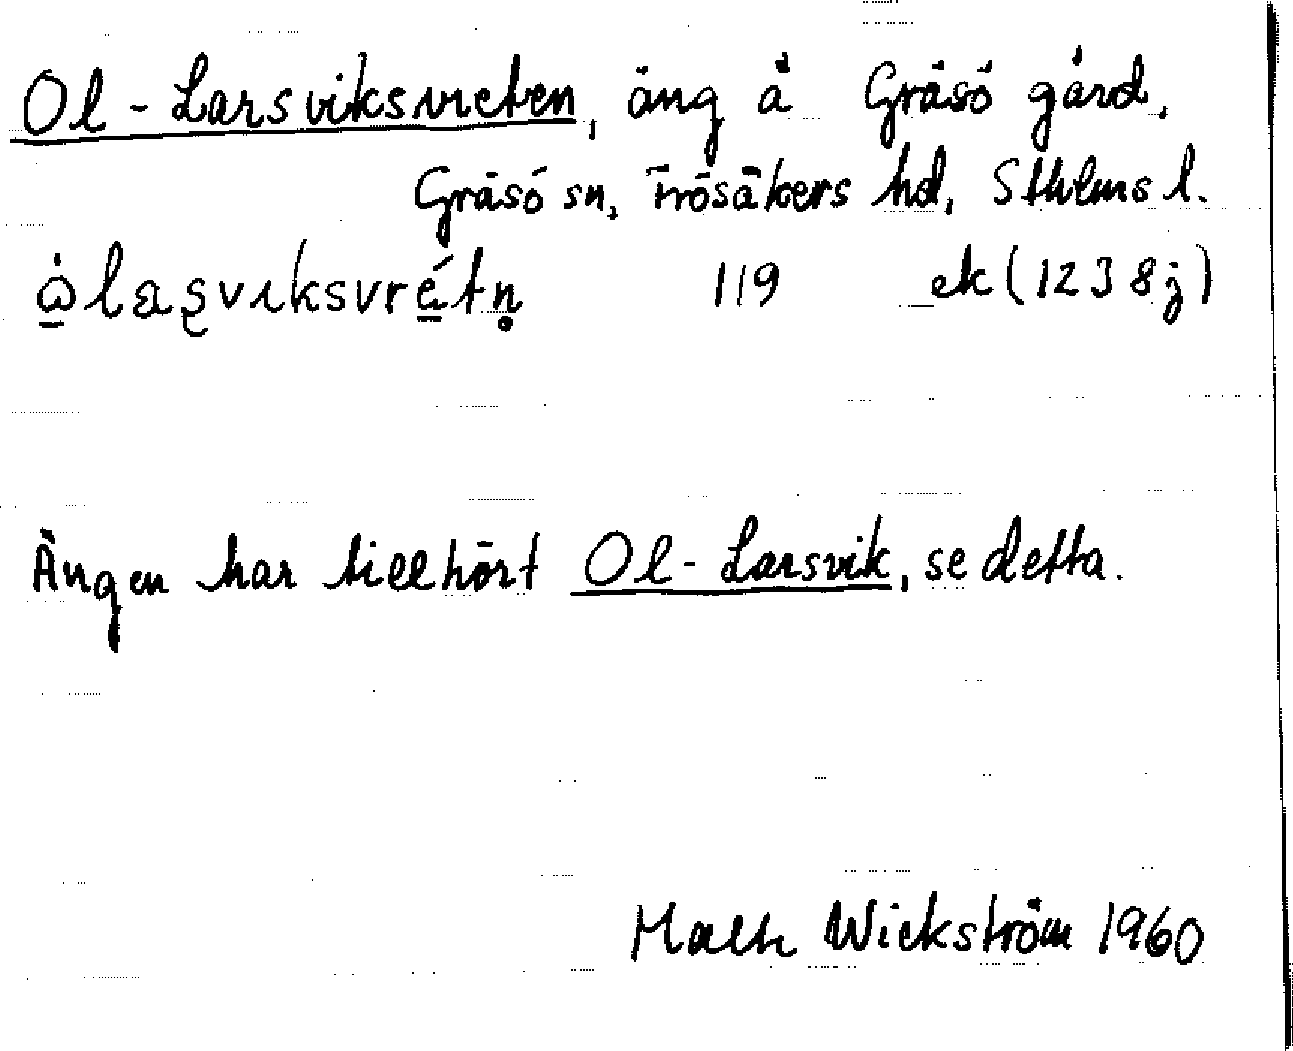 Ol-Larsviksvreten, äng å Gräsö gård,
Gräsö sn, Frösåkers hd, Sthlms l.
119 ek (1238j)
Ängen har tillhört Ol-Larsvik, se detta.
Wickström 1960